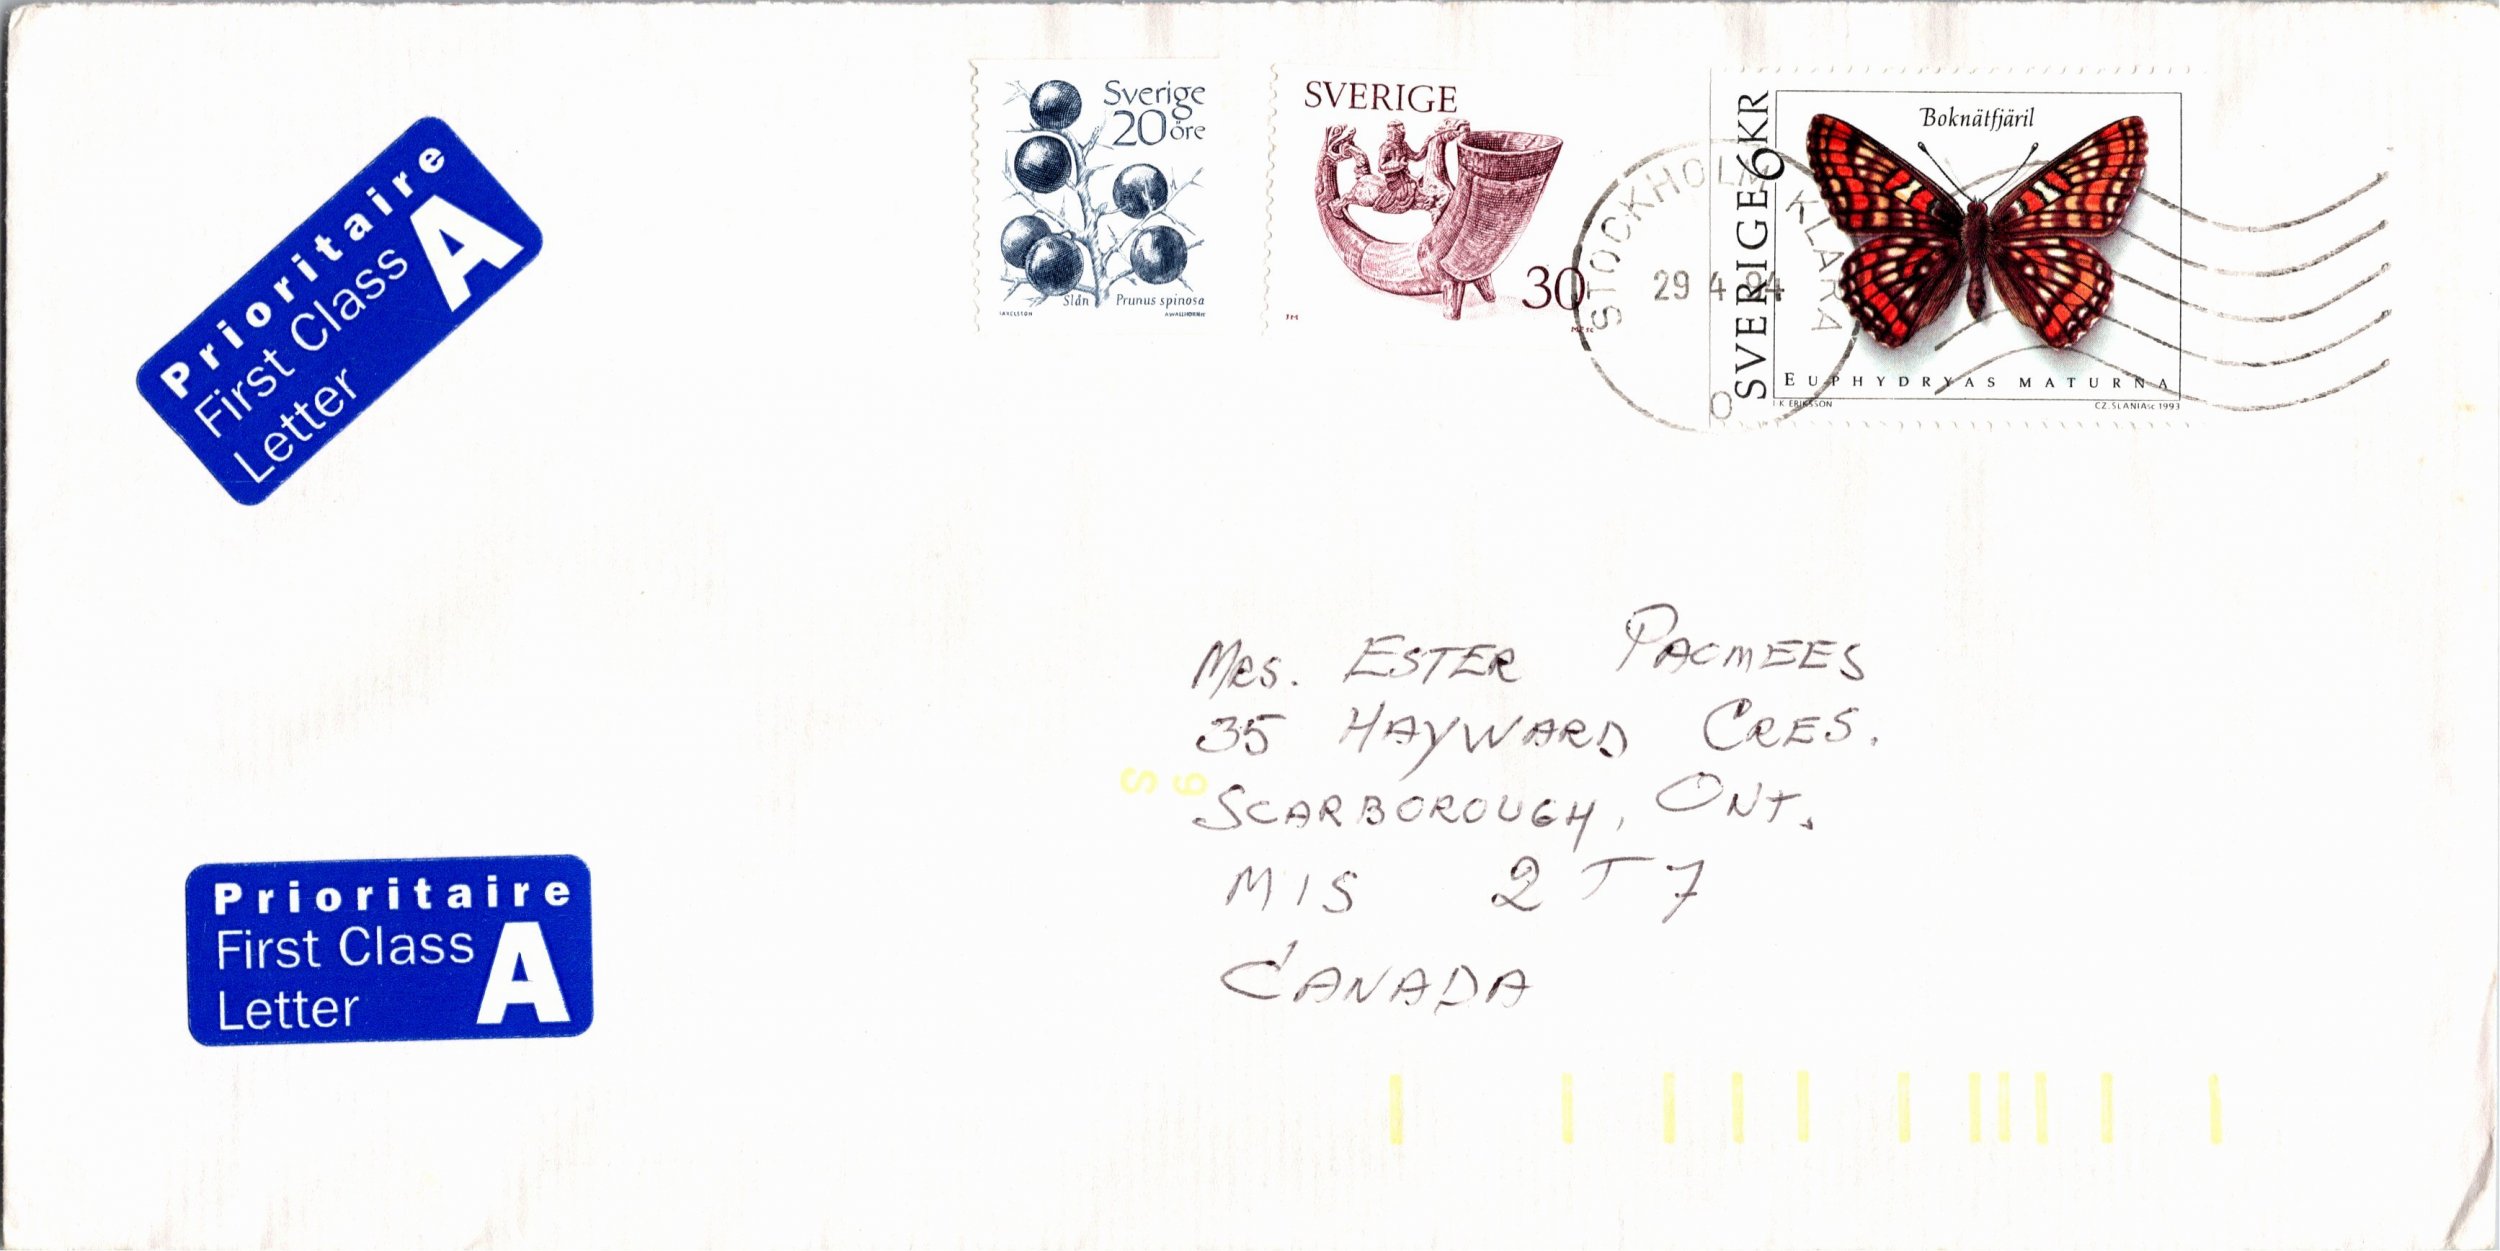 Prioritaire
First Class
Letter
A
Sverige
20 öre
Slån Prunus spinosa
AWALLHORN
SVERIGE
30
SVERIGE 6 KR
Boknätfjäril
EUPHYDRYAS MATURNA
K ERIKSSON
CZ. SLANIA sc 1993
STOCKHOLM KLARA
29 4 94
O
Mrs. ESTER PACMEES
35 HAYWARD CRES.
SCARBOROUGH, ONT.
M1S 2T7
CANADA
S 6
Prioritaire
First Class
Letter
A